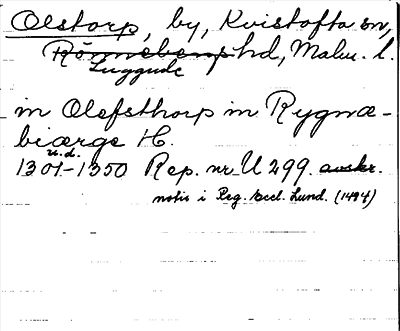 Olstorp, by, Kvistofta sn,
Rönnebergs hd, Malm. l.
Luggude
in Olefsthorp in Rygnæ-
biærgs H.
u.d.
1301-1350 Rep. nr U 299. avskr.
notis i Reg. eccl. Lund. (1494)